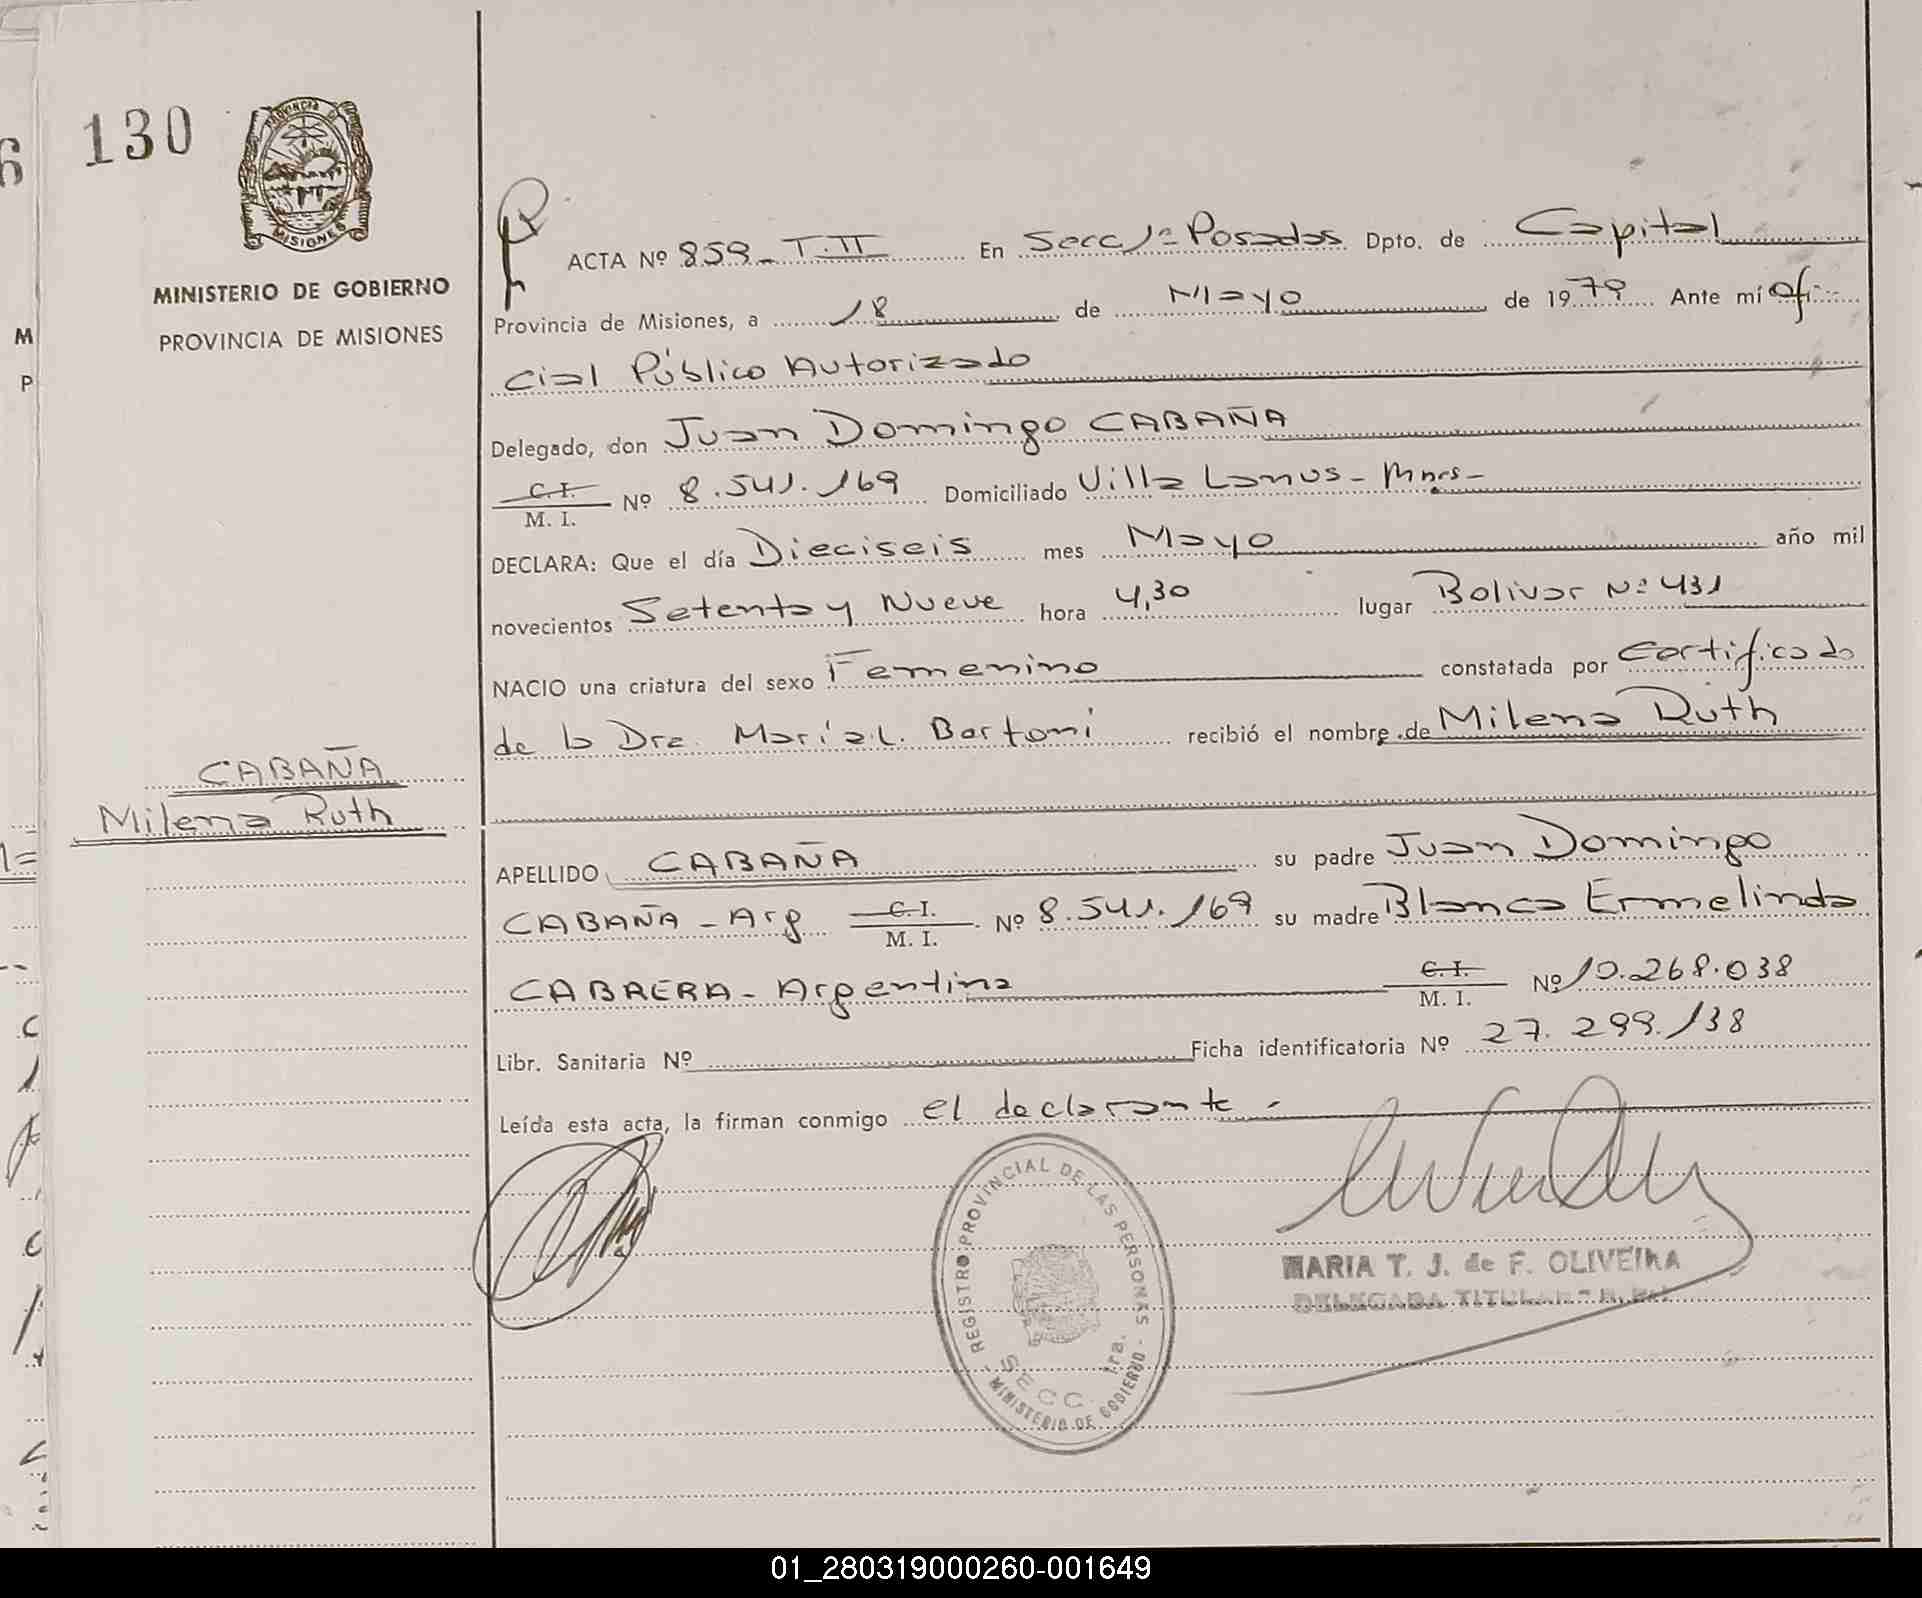 130
PROVINCIA DE
MISIONES
MINISTERIO DE GOBIERNO
PROVINCIA DE MISIONES
CABAÑA
Milena Ruth
ACTA Nº 859 - T. II En Secc 1ª Posadas Dpto. de Capital
Provincia de Misiones, a 18 de Mayo de 1979 Ante mí Ofi-
cial Público Autorizado
Delegado, don Juan Domingo CABAÑA
C.I. / M. I. Nº 8.541.169 Domiciliado Villa Lanus - Mnes -
DECLARA: Que el día Dieciseis mes Mayo año mil
novecientos Setenta y Nueve hora 4,30 lugar Bolivar Nº 431
NACIO una criatura del sexo Femenino constatada por Certificado
de la Dra. María L. Bartoni recibió el nombre de Milena Ruth
APELLIDO CABAÑA su padre Juan Domingo
CABAÑA - Arg C.I. / M. I. Nº 8.541.169 su madre Blanca Ermelinda
CABRERA - Argentina C.I. / M. I. Nº 10.268.038
Libr. Sanitaria Nº Ficha identificatoria Nº 27.299.138
Leída esta acta, la firman conmigo el declarante -
REGISTRO PROVINCIAL DE LAS PERSONAS
SECC. 1ra.
- MINISTERIO DE GOBIERNO -
MARIA T. J. de F. OLIVEIRA
DELEGADA TITULAR
01_280319000260-001649